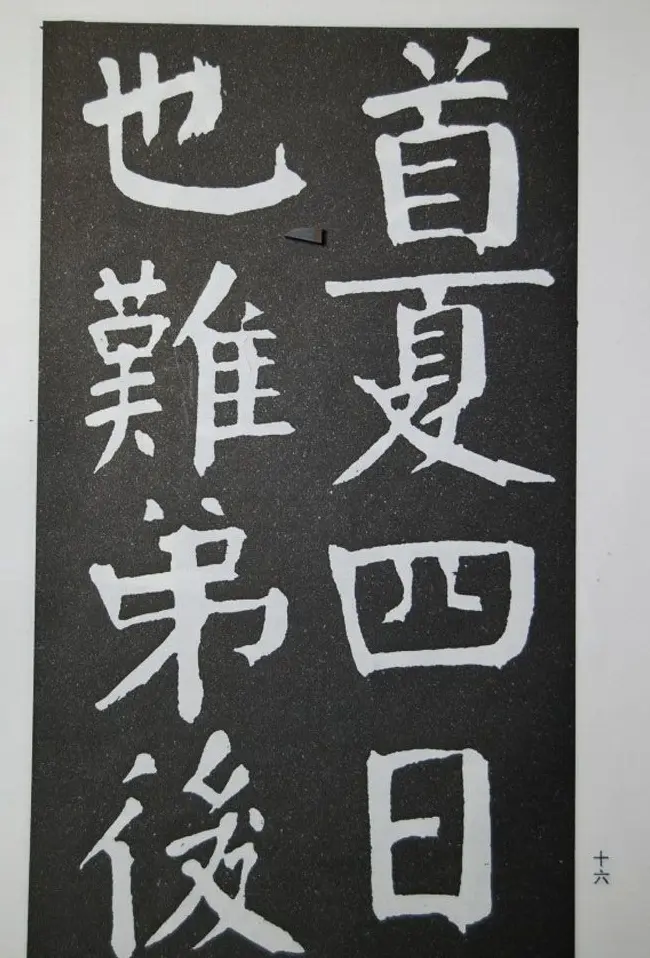 首夏四日
也難弟後
十六